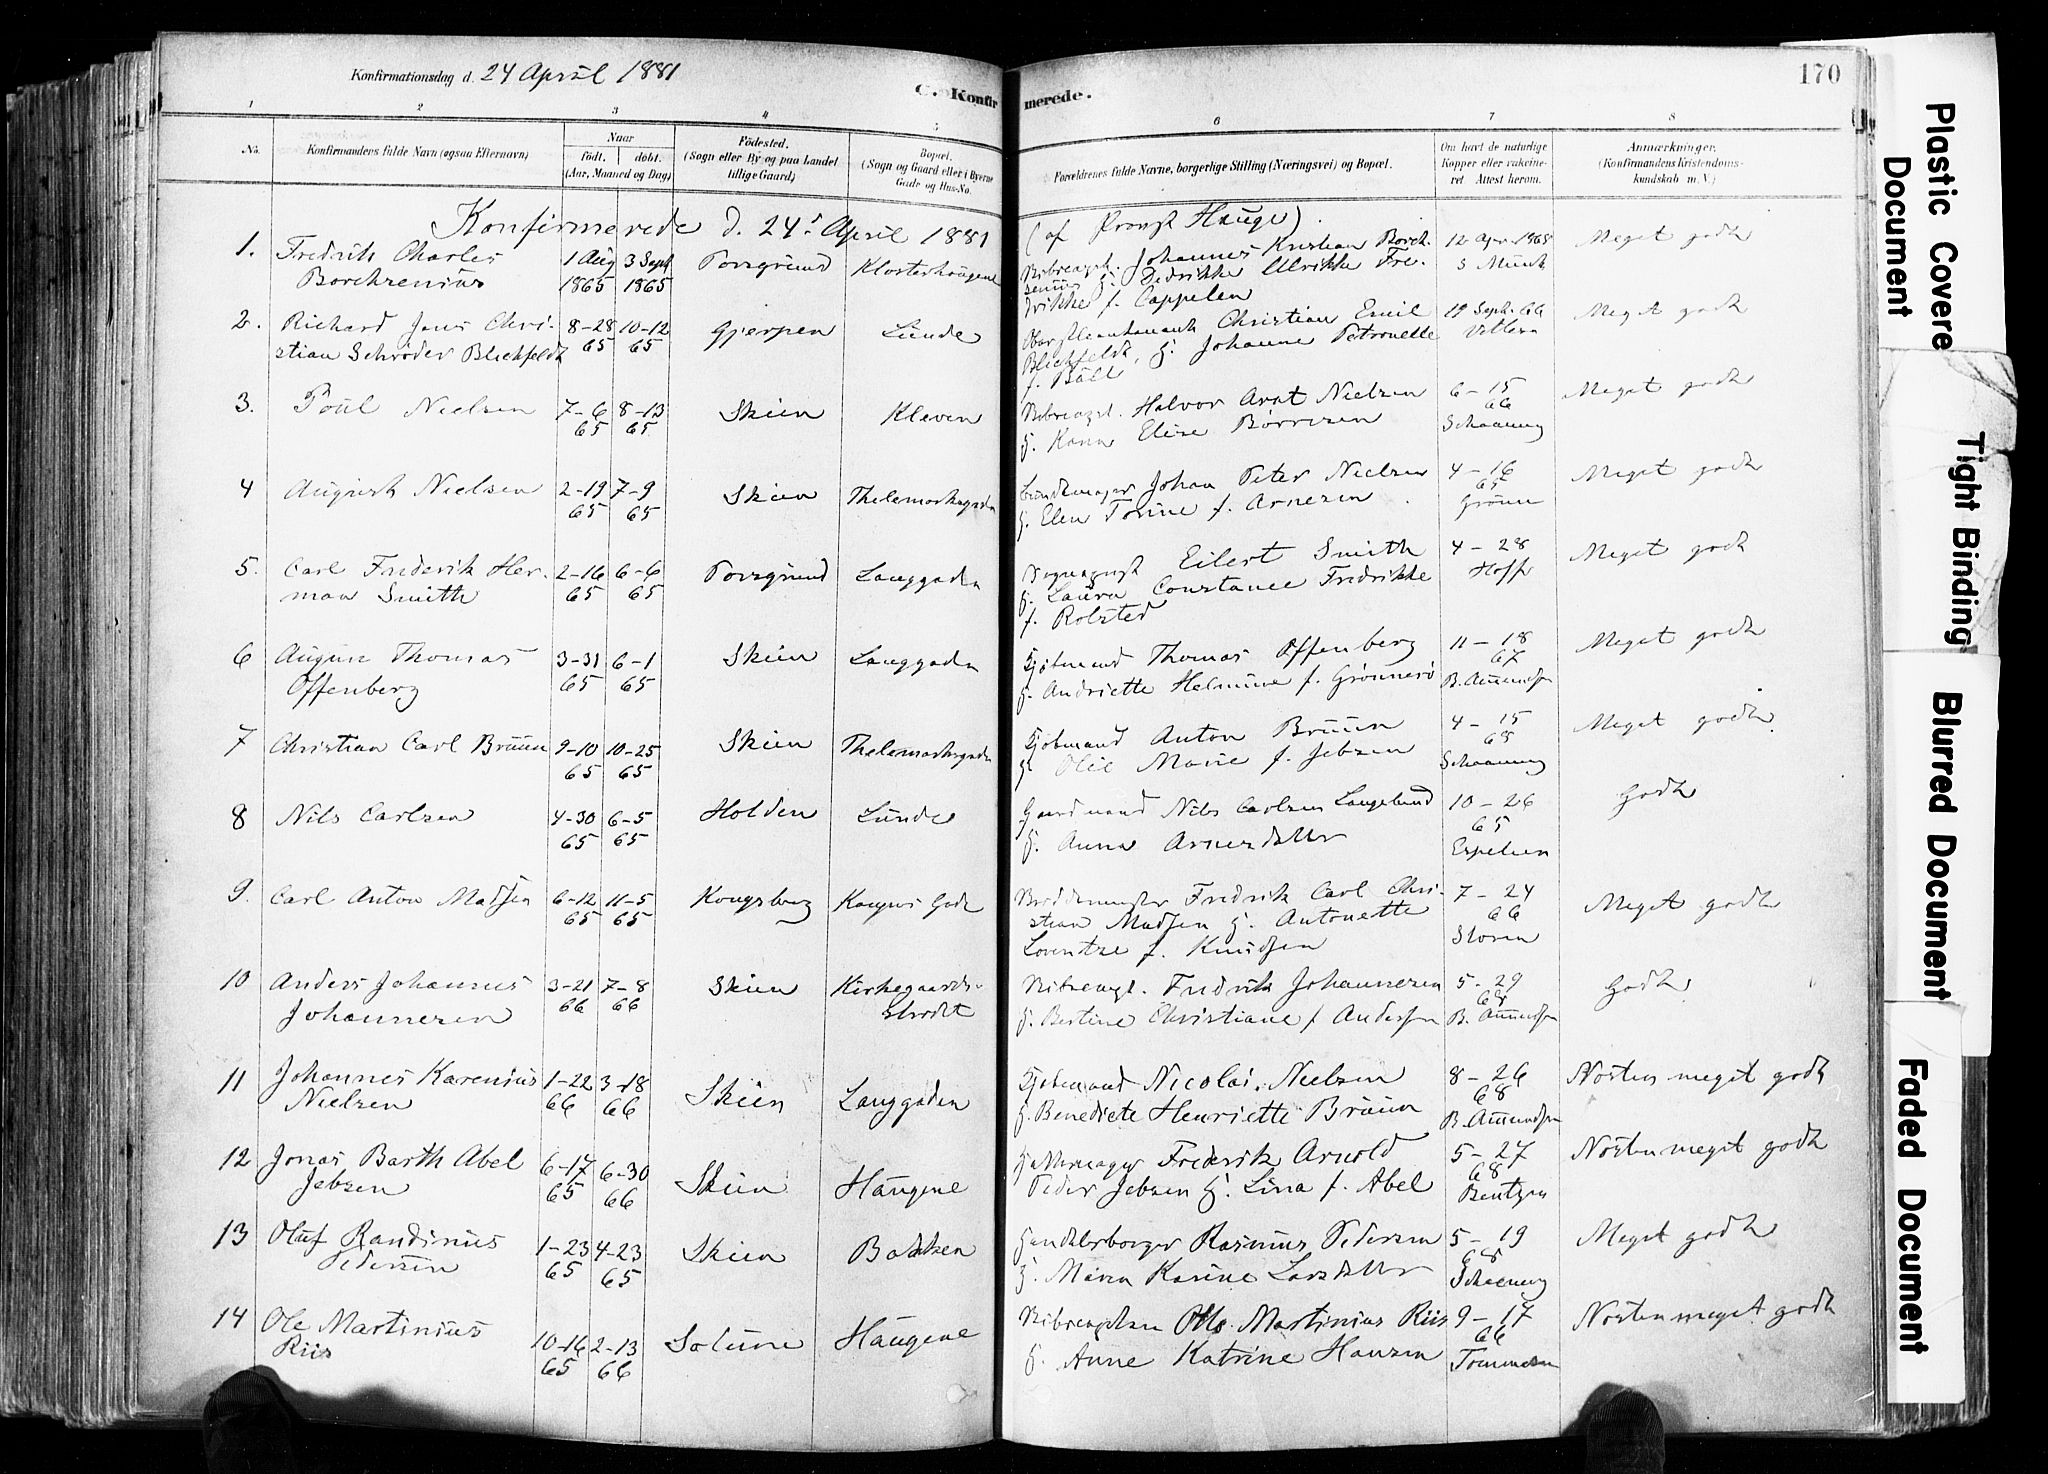 Konfirmationsdag d. 24 April 1881
C. Konfirmerede.
170
1 2 3 4 5 6 7 8
No.
Konfirmandens fulde Navn (ogsaa Efternavn)
Naar
født. døbt.
(Aar, Maaned og Dag)
Fødested.
(Sogn eller By og paa Landet
tillige Gaard)
Bopæl.
(Sogn og Gaard eller i Byerne
Gade og Hus-No.
Forældrenes fulde Navne, borgerlige Stilling (Næringsvei) og Bopæl.
Om havt de naturlige
Kopper eller vakcine-
ret Attest herom.
Anmærkninger,
(Konfirmandens Kristendoms-
kundskab m. V.)
Konfirmerede d. 24de April 1881 (af Provst Hauge).
1. Fredrik Charles
Borchsenius
1 Aug 3 Sept
1865 1865
Porsgrund
Klosterhaugene
Johannes Kristian Borch-
senius H. Didrikke Ulrikke Fre-
drikke f. Cappelen
12 Apr. 1868
S Munk
Meget godt
2. Richard Jens Chri-
stian Schrøder Blichfeldt
8-28 10-12
65 65
Gjerpen
Lunde
Christian Emil
Blichfeldt, H. Johanne Petronelle
f. Bull
19 Sept. 66
Meget godt
3. Poul Nielsen
7-6 8-13
65 65
Skien
Kleven
Halvor Arnt Nielsen
H. Karen Elise Børresen
6-15
66
Schaaning
Meget godt
4 August Nielsen
2-19 7-9
65 65
Skien
Thelemarksgaden
Bundtmager Johan Peter Nielsen
H. Elen Torine f. Arnesen
4-16
65
Meget godt
5. Carl Frederik Her-
man Smith
2-16 6-6
65 65
Porsgrund
Langgaden
Sogneprest Eilert Smith
H. Laura Constance Fredrikke
f. Rolsted
4-28
Hoff
Meget godt
6 August Thomas
Offenberg
3-31 6-1
65 65
Skien
Langgaden
Kjøbmand Thomas Offenberg
H. Andriette Helmine f. Grønnerø
11-18
67
B. Amundsen
Meget godt
7 Christian Carl Bruun
9-10 10-25
65 65
Skien
Thelemarksgaden
Kjøbmand Anton Bruun
H. Olie Marie f. Jebsen
4-15
68
Schaaning
Meget godt.
8 Nils Carlsen
4-30 6-5
65 65
Holden
Lunde
Gaardmand Nils Carlsen Langelund
H. Anna Arnesdatter
10-26
65
Espelien
Godt
9. Carl Anton Madsen
6-12 11-5
65 65
Kongsberg
Kongens Gade
Fredrik Carl Chri-
stian Madsen H. Antonette
Lorentze f. Knudsen
7-24
66
Storen
Meget godt
10 Anders Johannes
Johannesen
3-21 7-8
66 66
Skien
Kirkegaards-
strædet
Fredrik Johannesen
H. Bertine Christiane f Andersen
5-29
68
B. Amundsen
Godt
11 Johannes Karenius
Nielsen
1-22 3-18
66 66
Skien
Langgaden
Kjøbmand Nicolai Nielsen
H. Benedicte Henriette Bruun
8-26
68
B. Amundsen
Næsten meget godt
12 Jonas Barth Abel
Jebsen
6-17 6-30
65 66
Skien
Haugene
Frederik Arnold
Peder Jebsen H. Lina f. Abel
5-27
68
Bentzen
Næsten meget godt
13 Oluf Randinius
Pedersen
1-23 4-23
65 65
Skien
Bakken
Handelsborger Rasmus Pedersen
H. Maren Karine Larsdatter
5-19
68
Schaaning
Meget godt
14 Ole Martinius
Riis
10-16 2-13
65 66
Solum
Haugene
Ole Martinius Riis
H. Anne Katrine Hansen
9-17
66
Tommesen
Næsten meget godt
Plastic Covere
Document
Tight Binding
Blurred Document
Faded Document